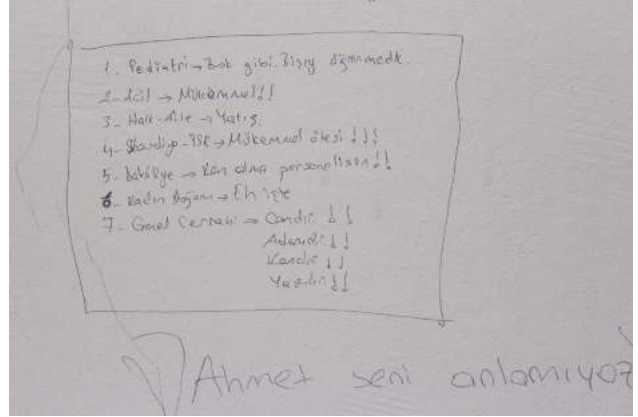 1- Pediatri → Bok gibi. Bişey öğrenmedk.
2- Acil → Mükemmel!!
3- Halk-Aile → Yatış
4- → Mükemmel ötesi !!!
5- Dahiliye → Kan alma personelisin!!
6- Kadın Doğum → Eh işte
7- Genel Cerrahi → Candır !!
Adamdır !!
Kandır !!
!!
Ahmet seni anlamıyoz